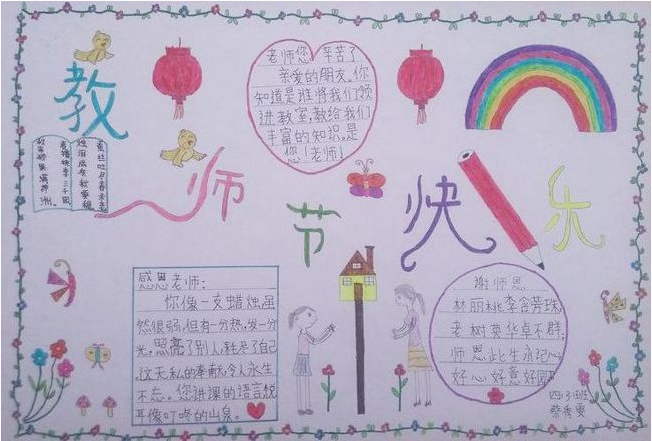 教
师
节
快
乐
老师您辛苦了
亲爱的朋友,你
知道是谁将我们领
进教室,教给我们
丰富的知识,是
您!老师!
蚕丝吐尽春未老
烛泪成灰秋更稠
春播桃李三千圃
感恩老师:
你像一支蜡烛,虽
然很弱,但有一分热,发一分
光,照亮了别人,耗尽了自己
这无私的奉献,令人永生
不忘。您讲课的语言,悦
耳像叮咚的山泉。
谢师恩
林丽桃李含芳珠,
老树英华卓不群,
师恩此生永记心
好心好意好园
四.3班